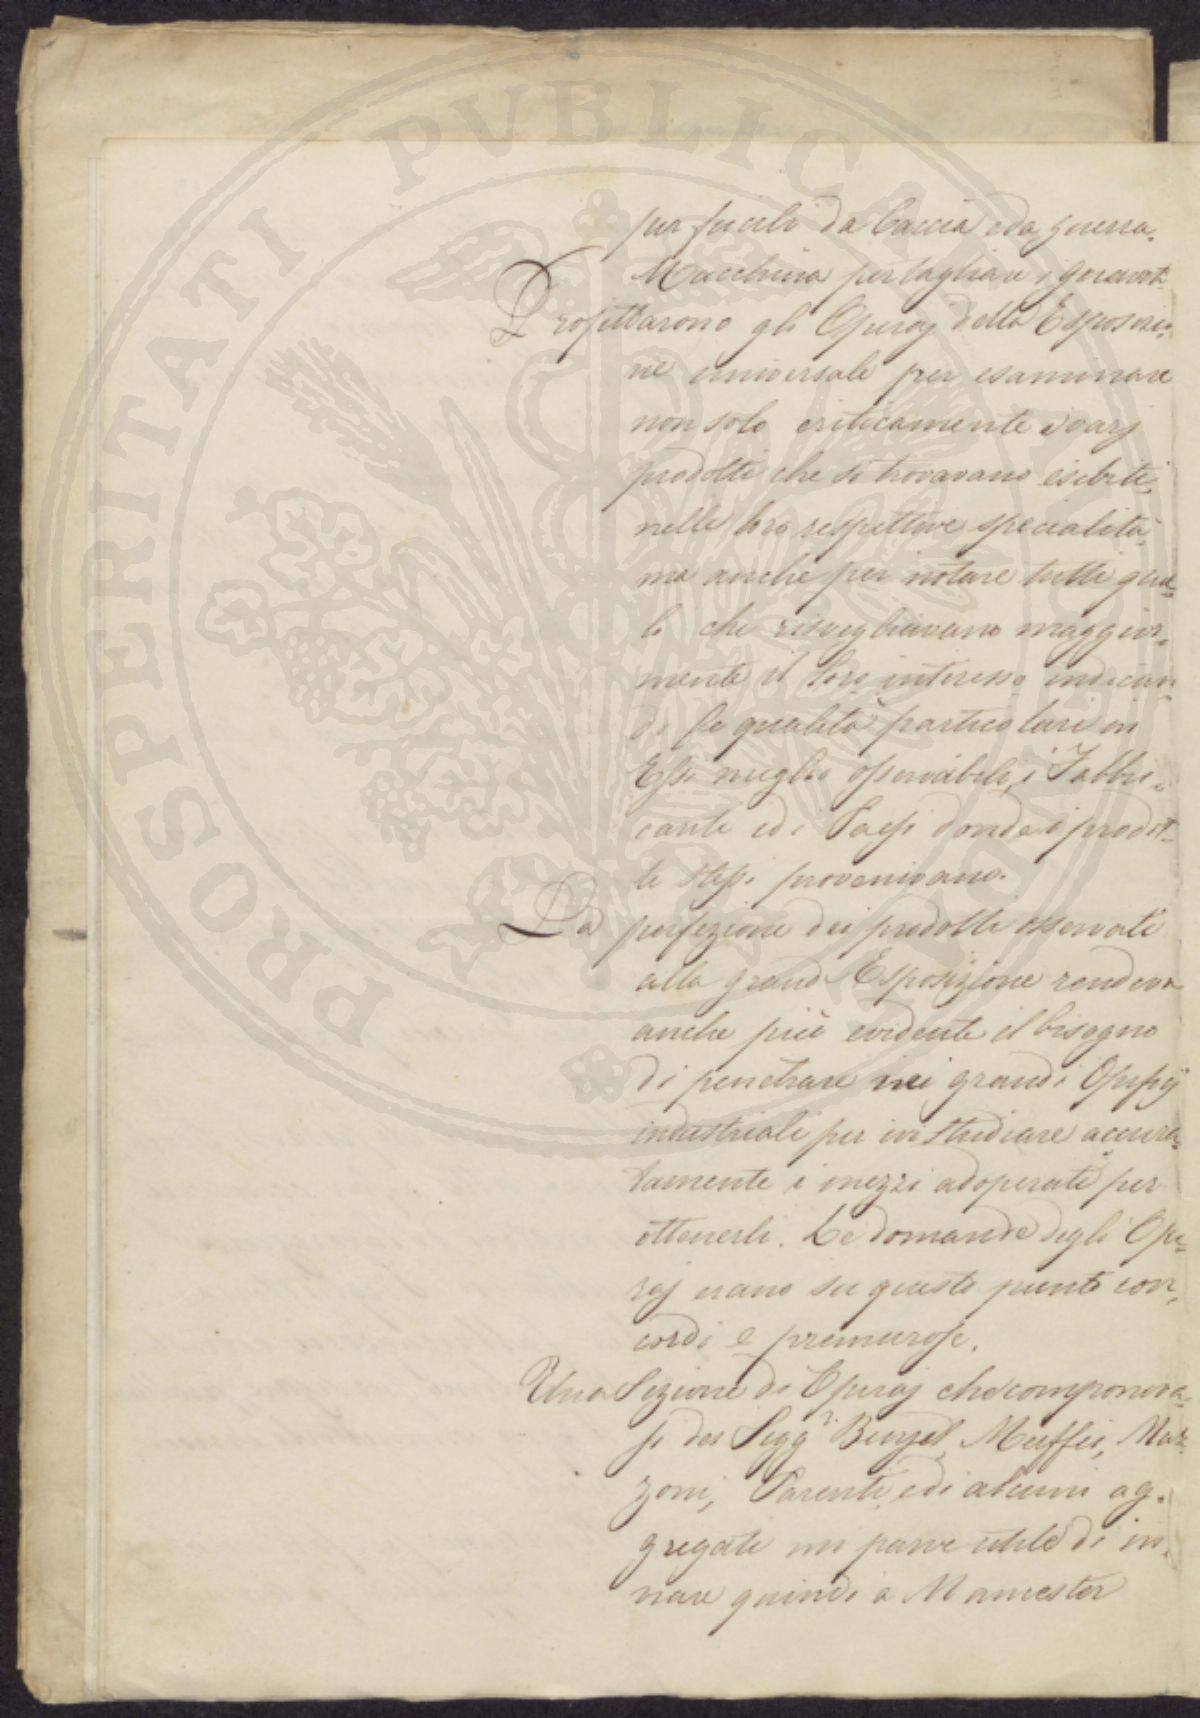 PROSPERITATI PUBLICAE
per fucili da Caccia e da guerra.
Macchina per tagliare i
Profittarono gli Operaj della Esposizio-
ne universale per esaminare
non solo criticamente i varj
prodotti che si trovavano esibiti
nelle loro respettive specialità,
ma anche per notare tutti quel-
li che risvegliavano maggior-
mente il loro interesse indican-
do le qualità particolari in
Essi meglio osservabili, i Fabbri-
canti ed i Paesi donde i prodot-
ti stessi provenivano.
La perfezione dei prodotti osservati
alla grande Esposizione rendeva
anche più evidente il bisogno
di penetrare nei grandi Opifizj
industriali per ivi studiare accura-
tamente i mezzi adoperati per
ottenerli. Le domande degli Ope-
raj erano su questo punto con-
cordi e premurose.
Una Sezione di Operaj che componeva-
si dei Sigg.ri Maffei, Mar-
zoni, Parenti, ed alcuni ag-
gregati mi parve utile di in-
viare quindi a Mancester